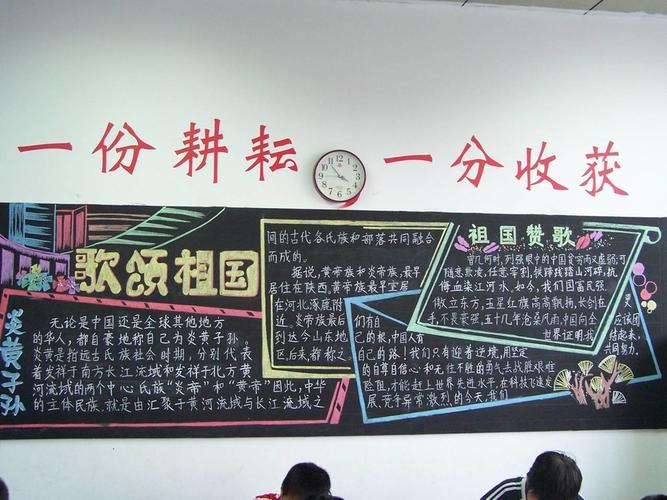 一份耕耘 一分收获
歌颂祖国
炎黄子孙
无论是中国还是全球其他地方
的华人，都自豪地称自己为炎黄子孙。
炎黄是指远古氏族社会时期，分别代表
着发祥于南方长江流域和发祥于北方黄
河流域的两个中心氏族“炎帝”和“黄帝”因此，中华
的主体民族，就是由汇聚于黄河流域与长江流域之
间的古代各氏族和部落共同融合
而成的。
据说，黄帝族和炎帝族，最早
居住在陕西，黄帝族最早定居
在河北涿鹿附
近，炎帝族最后
到达今山东地
区，后来，都称之
祖国赞歌
曾几何时，列强眼中的中国贫穷而又羸弱；可
随意欺凌，任意宰割，铁蹄践踏山河碎，抗
侮血染江河水，如今，我们国富民强，
傲立东方，五星红旗高高飘扬，长剑在
手，不畏豪强，五十几年沧桑风雨，中国向全
世界证明，我
们有自
己的根，中国人有
自己的孙！我们只有迎着逆境，用坚定
的自尊自信心和无往不胜的勇气去战胜艰难
险阻，才能赶上世界先进水平，在科技飞速发
展、竞争异常激烈的今天，我们
更
应该团
结起来，
共同努力．